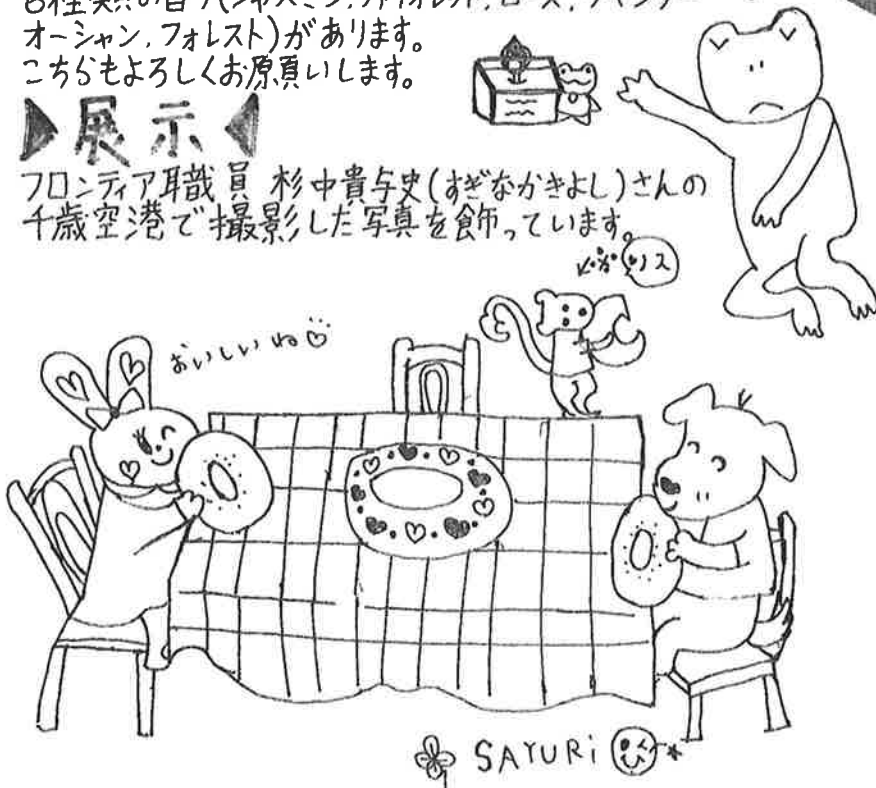 オーシャン,フォレスト)があります。
こちらもよろしくお願いします。
▶展示◀
フロンティア職員 杉中貴与史(すぎなかきよし)さんの
千歳空港で撮影した写真を飾っています。
リス
おいしいね♡
SAYURi